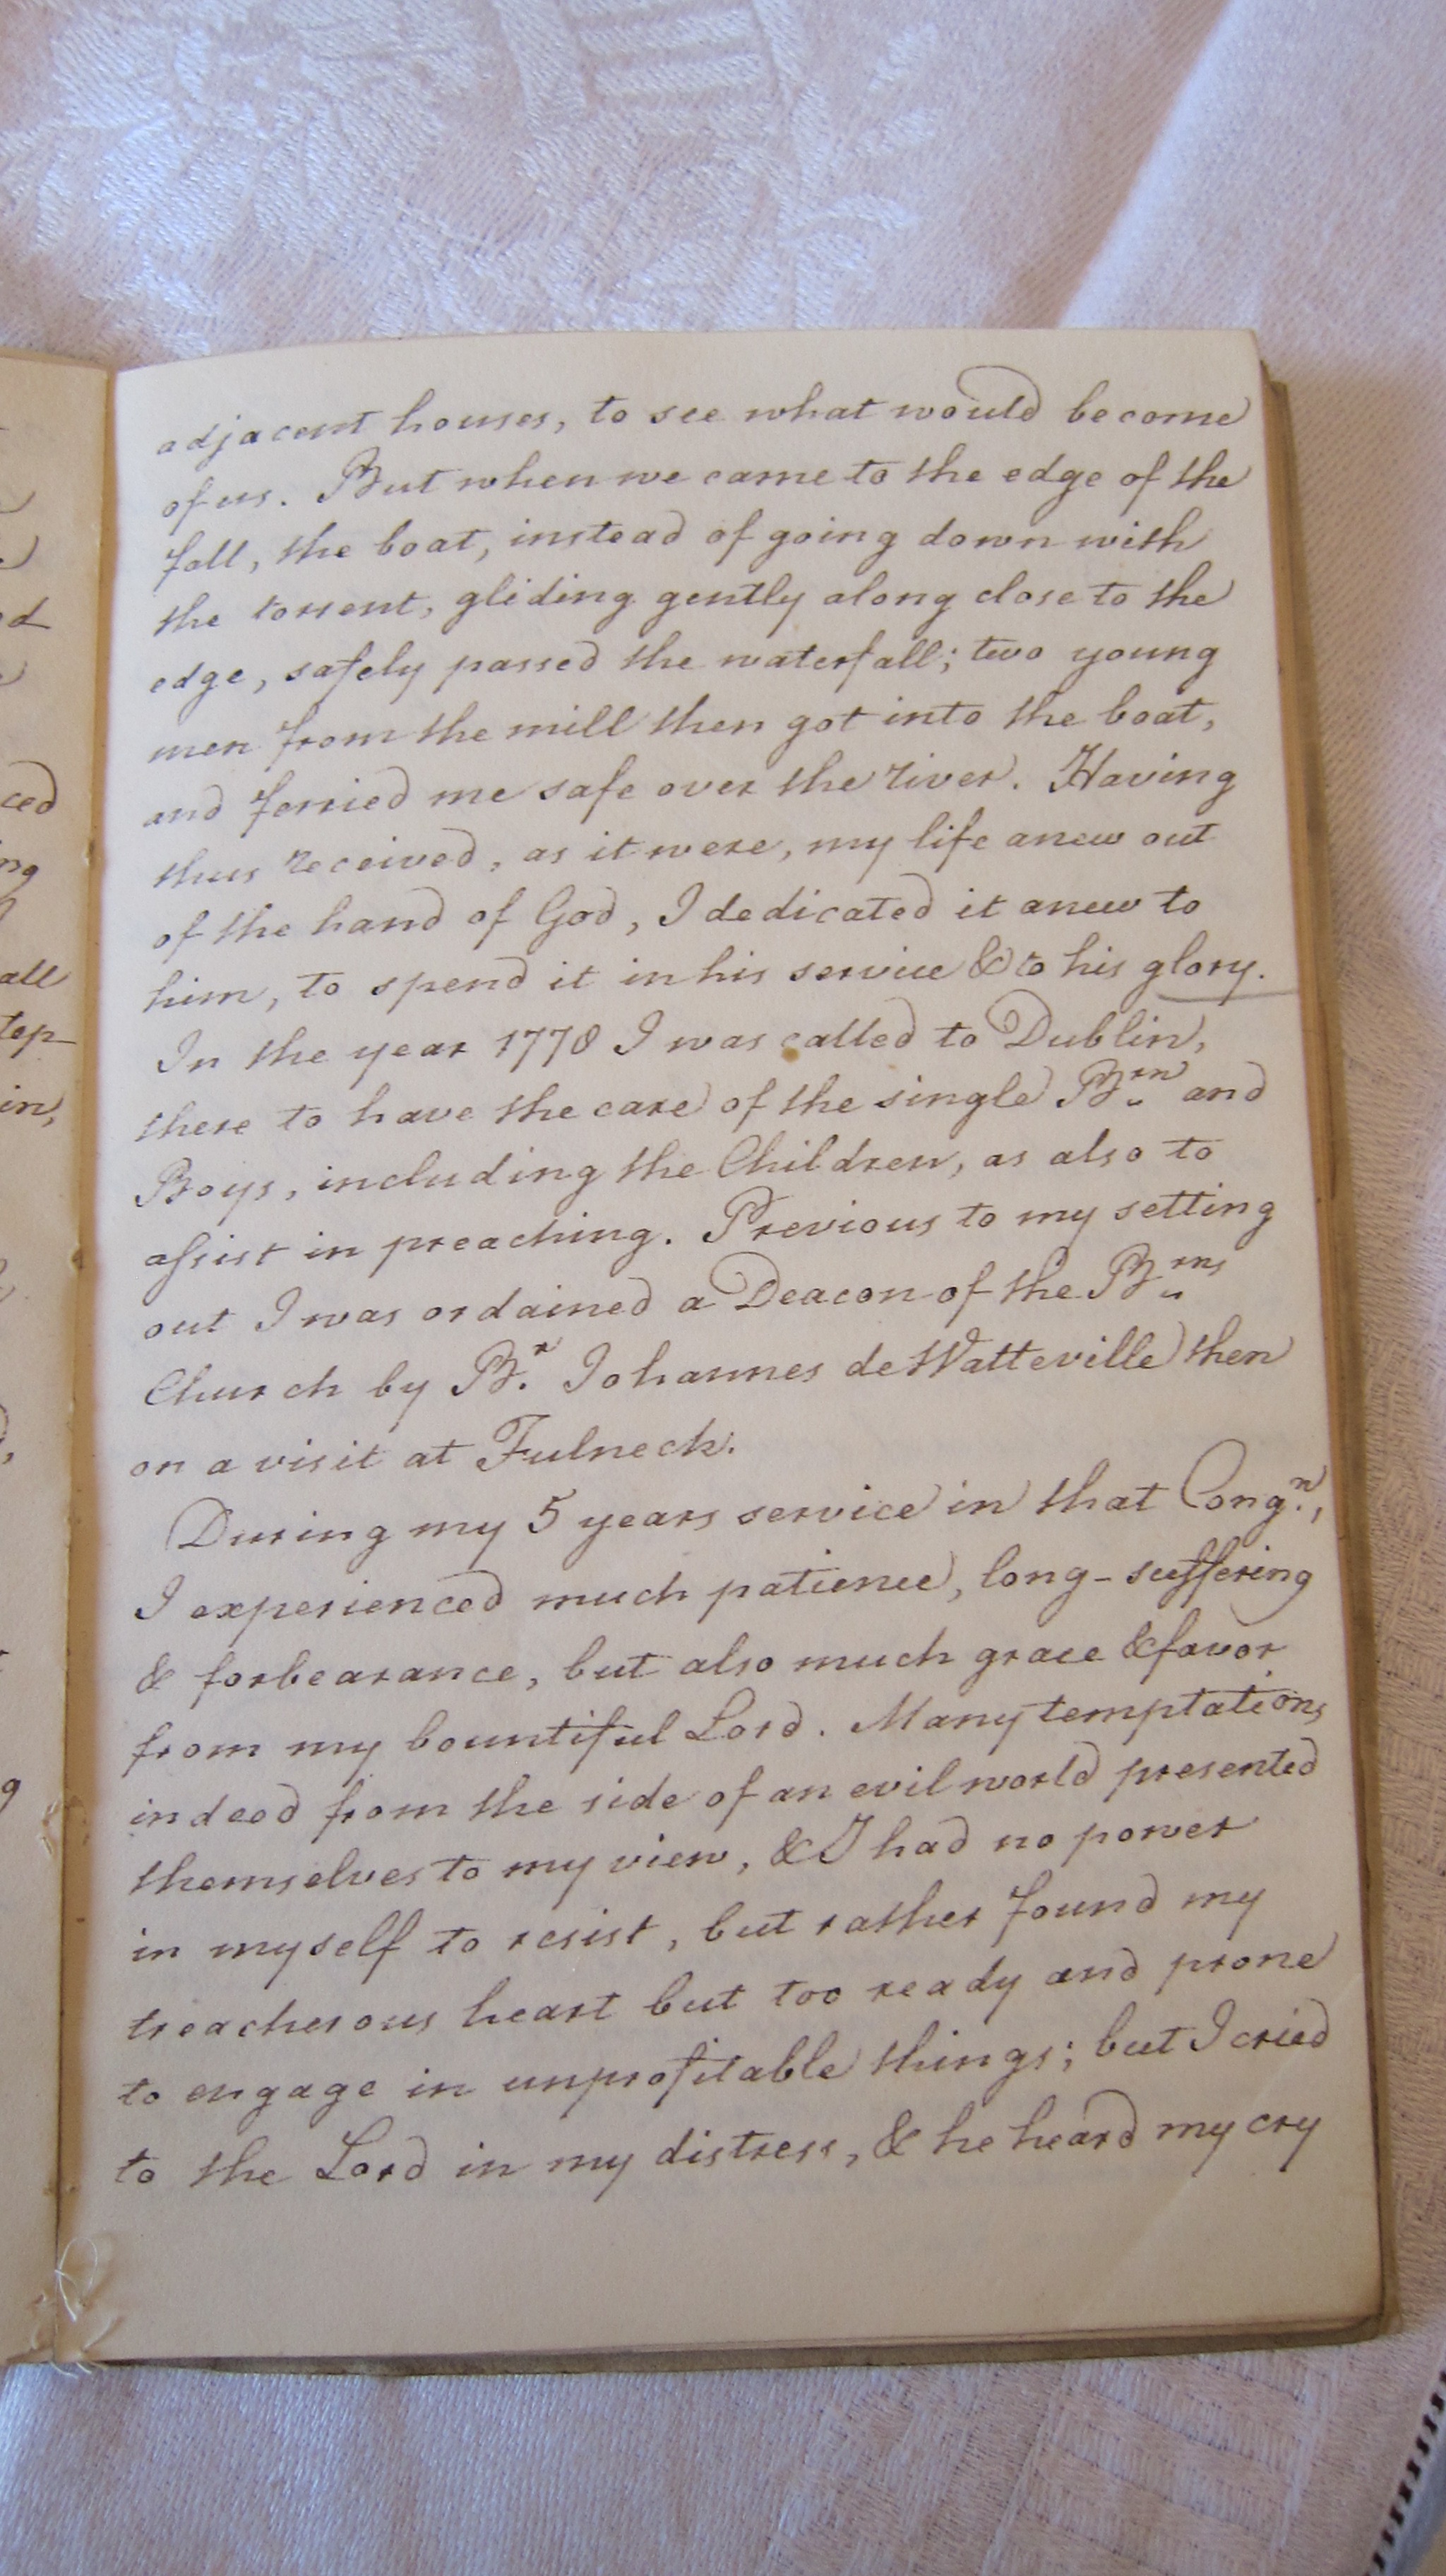 adjacent houses, to see what would become
of us. But when we came to the edge of the
fall, the boat, instead of going down with
the torrent, gliding gently along close to the
edge, safely passed the waterfall; two young
men from the mill then got into the boat,
and ferried me safe over the river. Having
thus received, as it were, my life anew out
of the hand of God, I dedicated it anew to
him, to spend it in his service & to his glory.
In the year 1778 I was called to Dublin,
there to have the care of the single Brn and
Boys, including the Children, as also to
assist in preaching. Previous to my setting
out I was ordained a Deacon of the Brns
Church by Br. Johannes de Watteville then
on a visit at Fulneck.
During my 5 years service in that Congn.,
I experienced much patience, long-suffering
& forbearance, but also much grace & favor
from my bountiful Lord. Many temptations
indeed from the side of an evil world presented
themselves to my view, & I had no power
in myself to resist, but rather found my
treacherous heart but too ready and prone
to engage in unprofitable things; but I cried
to the Lord in my distress, & he heard my cry